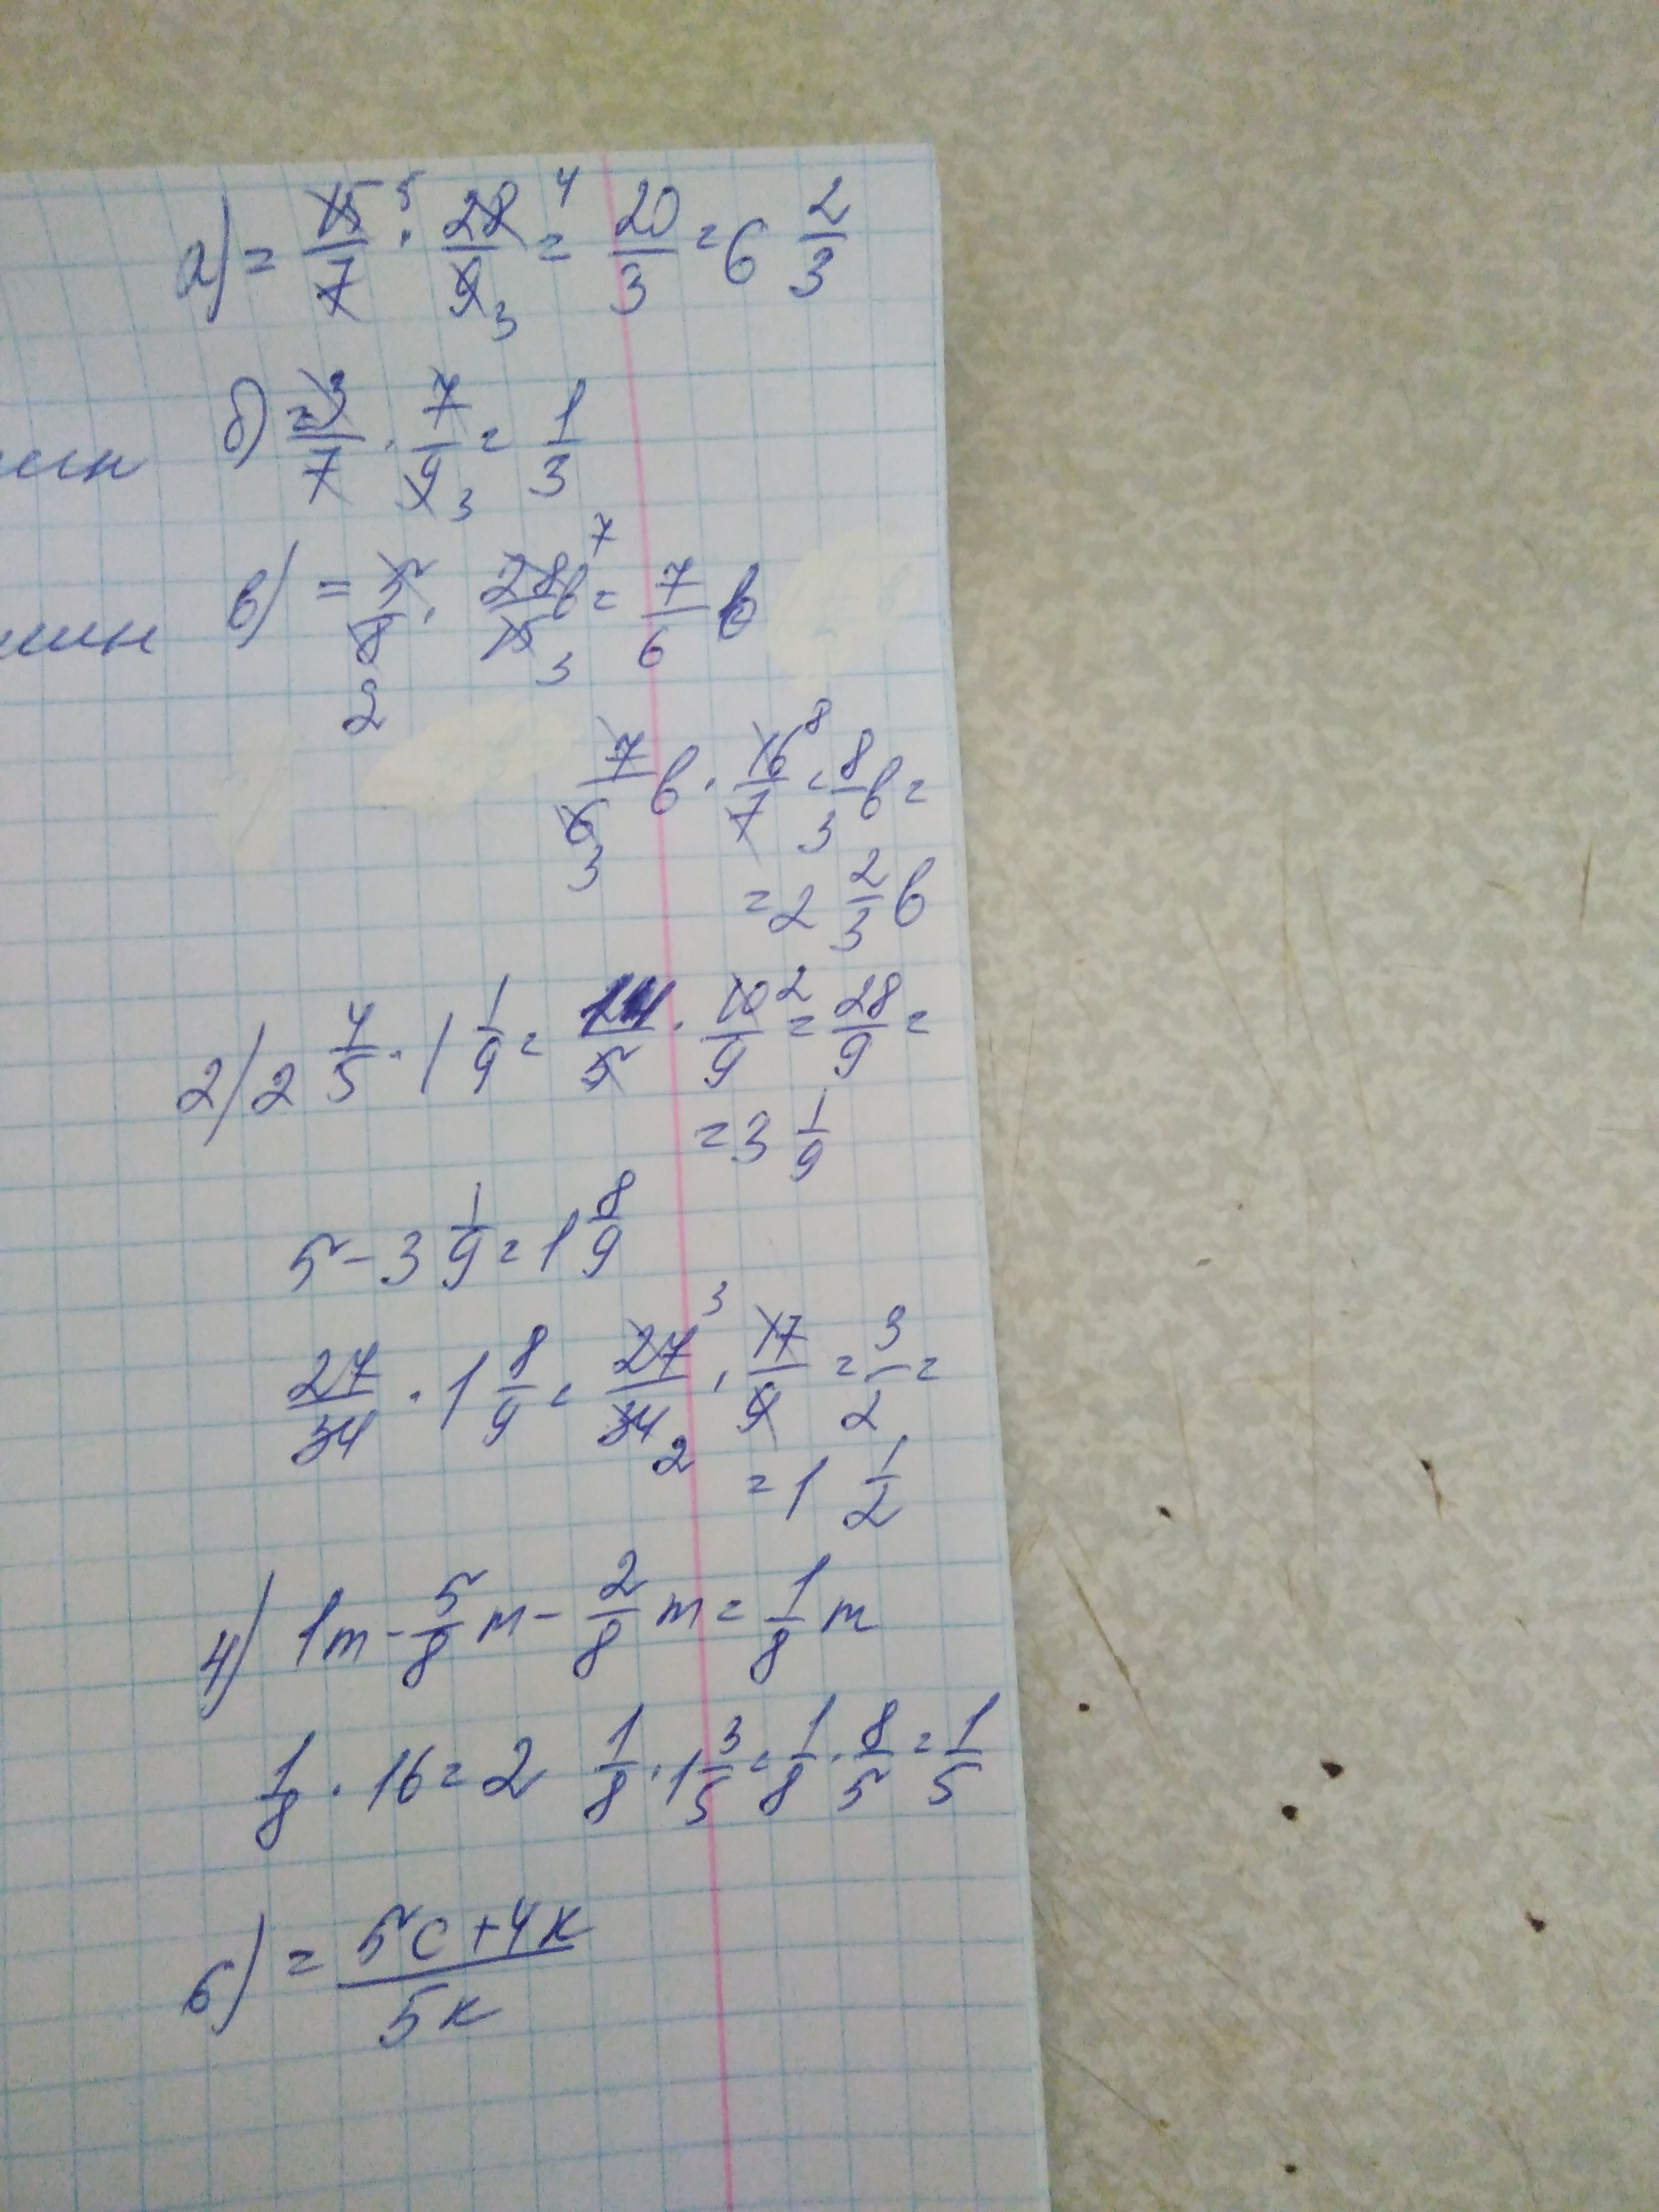 а) = 15/7 5 · 28/9 4 3 = 20/3 = 6 2/3
б) = 3/7 · 7/9 3 = 1/3
в) = 5/8 2 · 28в/15 7 3 = 7/6 в
7/6 3 в · 16/7 8 = 8/3 в =
= 2 2/3 в
2) 2 4/5 · 1 1/9 = 14/5 · 10/9 2 = 28/9 =
= 3 1/9
5 - 3 1/9 = 1 8/9
27/34 · 1 8/9 = 27/34 3 2 · 17/9 = 3/2 =
= 1 1/2
4) 1m - 5/8 m - 2/8 m = 1/8 m
1/8 · 16 = 2 1/8 · 1 3/5 = 1/8 · 8/5 = 1/5
6) = 5c + 4к / 5к